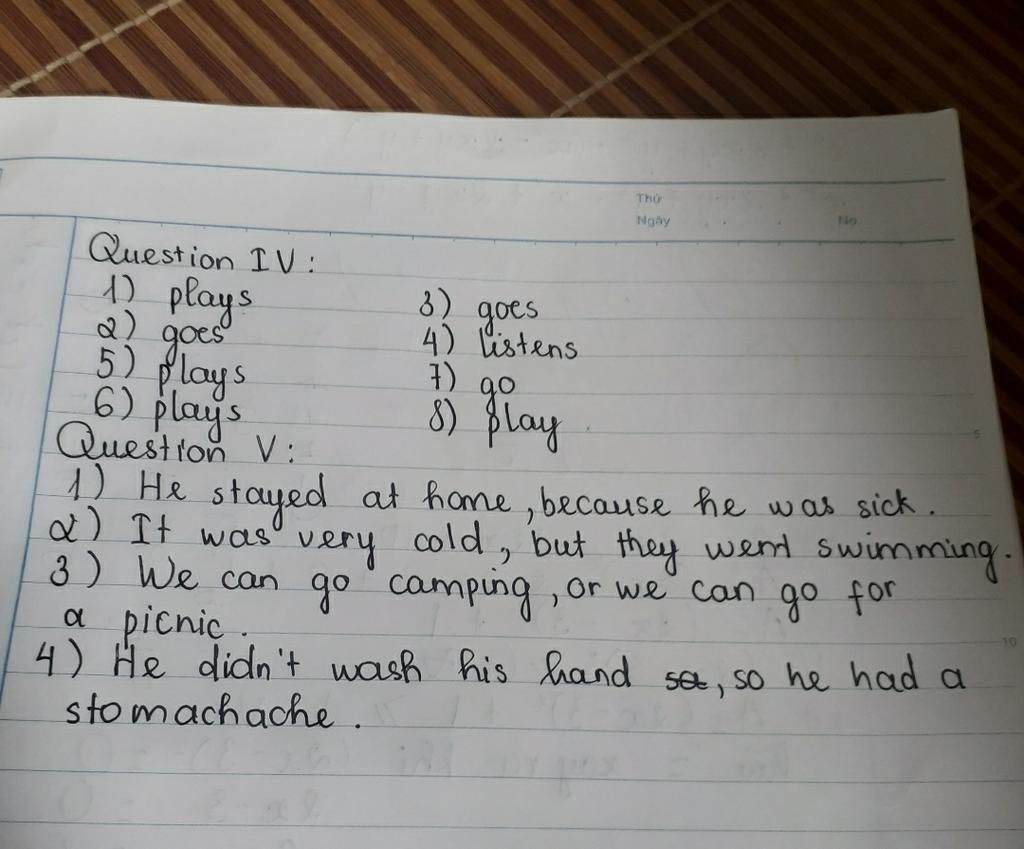 Thứ
Ngày . . . No.
Question IV:
1) plays 3) goes
2) goes 4) listens
5) plays 7) go
6) plays 8) play
Question V:
5
1) He stayed at home, because he was sick.
2) It was very cold, but they went swimming.
3) We can go camping, or we can go for
a picnic.
10
4) He didn't wash his hand so, so he had a
stomachache.